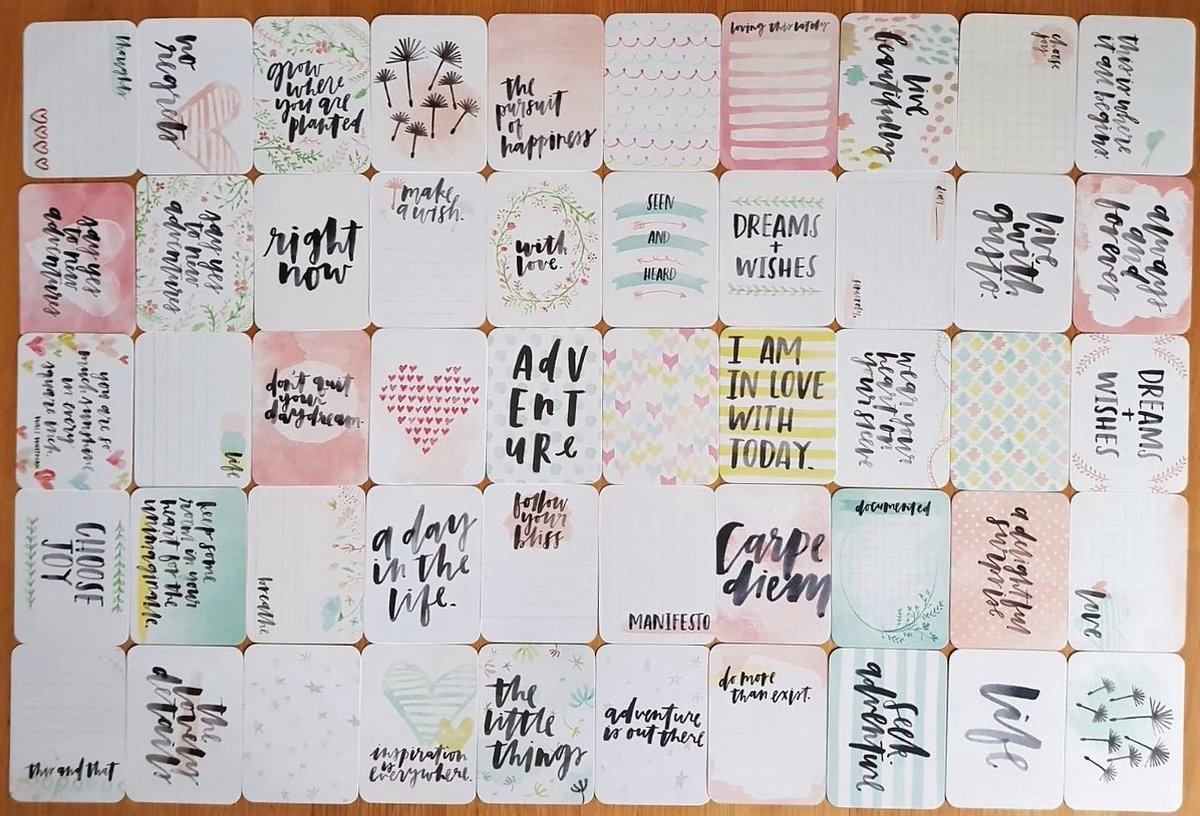 thoughts
no
regrets
grow
where
you are
planted
the
pursuit
of
happiness
loving this lately
live
beautifully
choose
joy
this is where
it all begins
say yes
to new
adventures
say yes
to new
adventures
right
now
make
a wish.
with
love.
SEEN
AND
HEARD
DREAMS
+
WISHES
sincerely,
live
with
gusto.
always
and
forever
you are so
much sunshine
in every
square inch.
WALT WHITMAN
life
don't quit
your
daydream.
AdV
EnT
uRe
I AM
IN LOVE
WITH
TODAY.
wear your
heart on
your sleeve
DREAMS
+
WISHES
CHOOSE
JOY
keep some
room in your
heart for the
unimaginable.
breathe
a day
in the
life.
follow
your
bliss
MANIFESTO
Carpe
diem
documented
a delightful
surprise
love
this and that
the
lovely
details
inspiration
is
everywhere.
the
little
things
adventure
is out there
do more
than exist.
seek
adventure
life